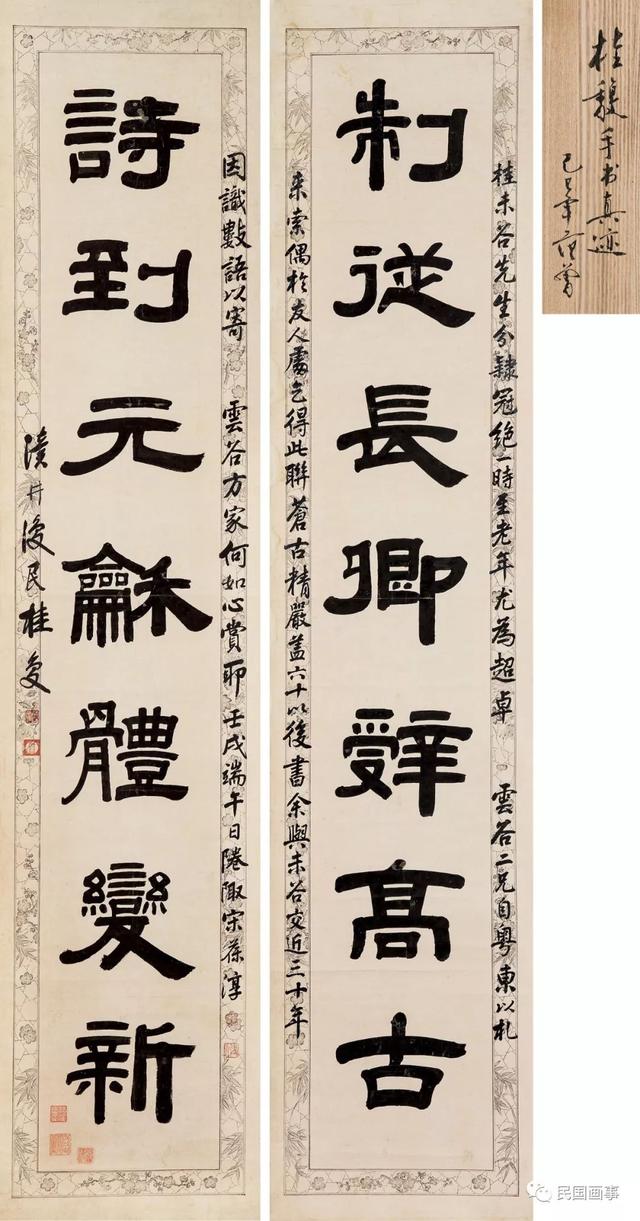 桂馥手书真迹
己巳年范曾
桂未谷先生分隸冠絕一時至老年尤為超卓 雲谷二兄自粤東以札
制從長卿辤高古
来索偶於友人處乞得此聯蒼古精嚴蓋六十以後書余與未谷交近三十年
因識數語以寄 雲谷方家何如心賞耶 壬戌端午日陬宋葆淳
詩到元龢體變新
瀆井復民桂馥
民国画事